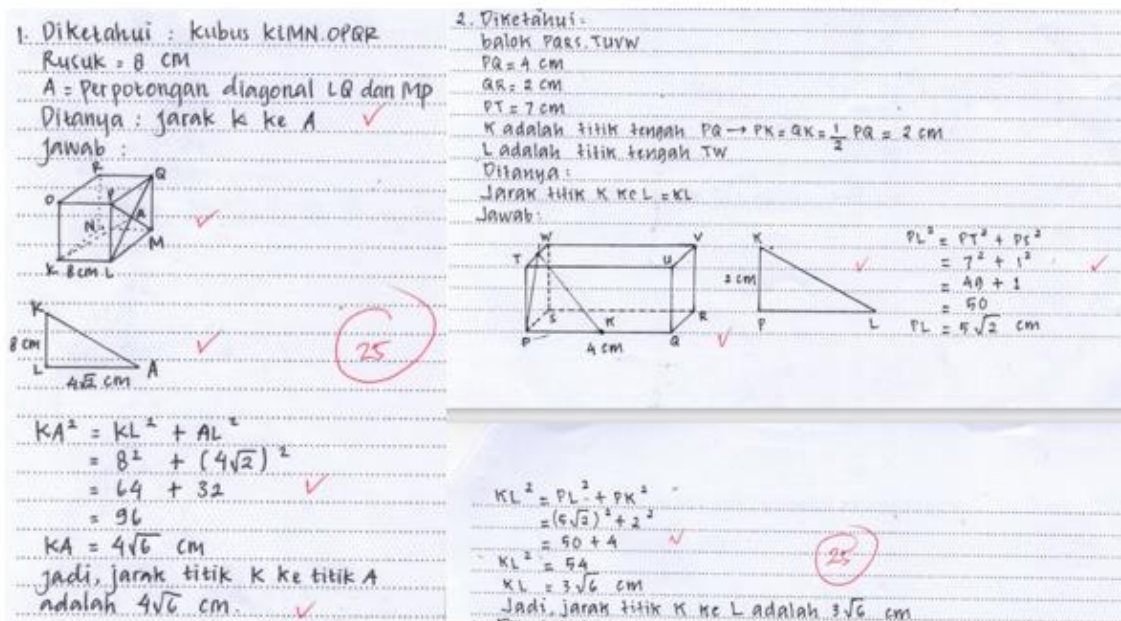 1. Diketahui : kubus KLMN.OPQR
Rusuk = 8 cm
A = Perpotongan diagonal LQ dan MP
Ditanya : jarak k ke A
Jawab :
R
Q
O
P
A
N
M
K
8 cm
L
K
8 cm
L
4√2 cm
A
25
KA² = KL² + AL²
= 8² + (4√2)²
= 64 + 32
= 96
KA = 4√6 cm
Jadi, jarak titik K ke titik A
adalah 4√6 cm.
2. Diketahui :
balok PQRS.TUVW
PQ = 4 cm
QR = 2 cm
PT = 7 cm
K adalah titik tengah PQ → PK = QK = 1/2 PQ = 2 cm
L adalah titik tengah TW
Ditanya :
Jarak titik K ke L = KL
Jawab :
W
V
T
U
S
R
P
K
Q
4 cm
K
2 cm
P
L
PL² = PT² + PS²
= 7² + 1²
= 49 + 1
= 50
PL = 5√2 cm
KL² = PL² + PK²
= (5√2)² + 2²
= 50 + 4
KL² = 54
KL = 3√6 cm
25
Jadi, jarak titik K ke L adalah 3√6 cm